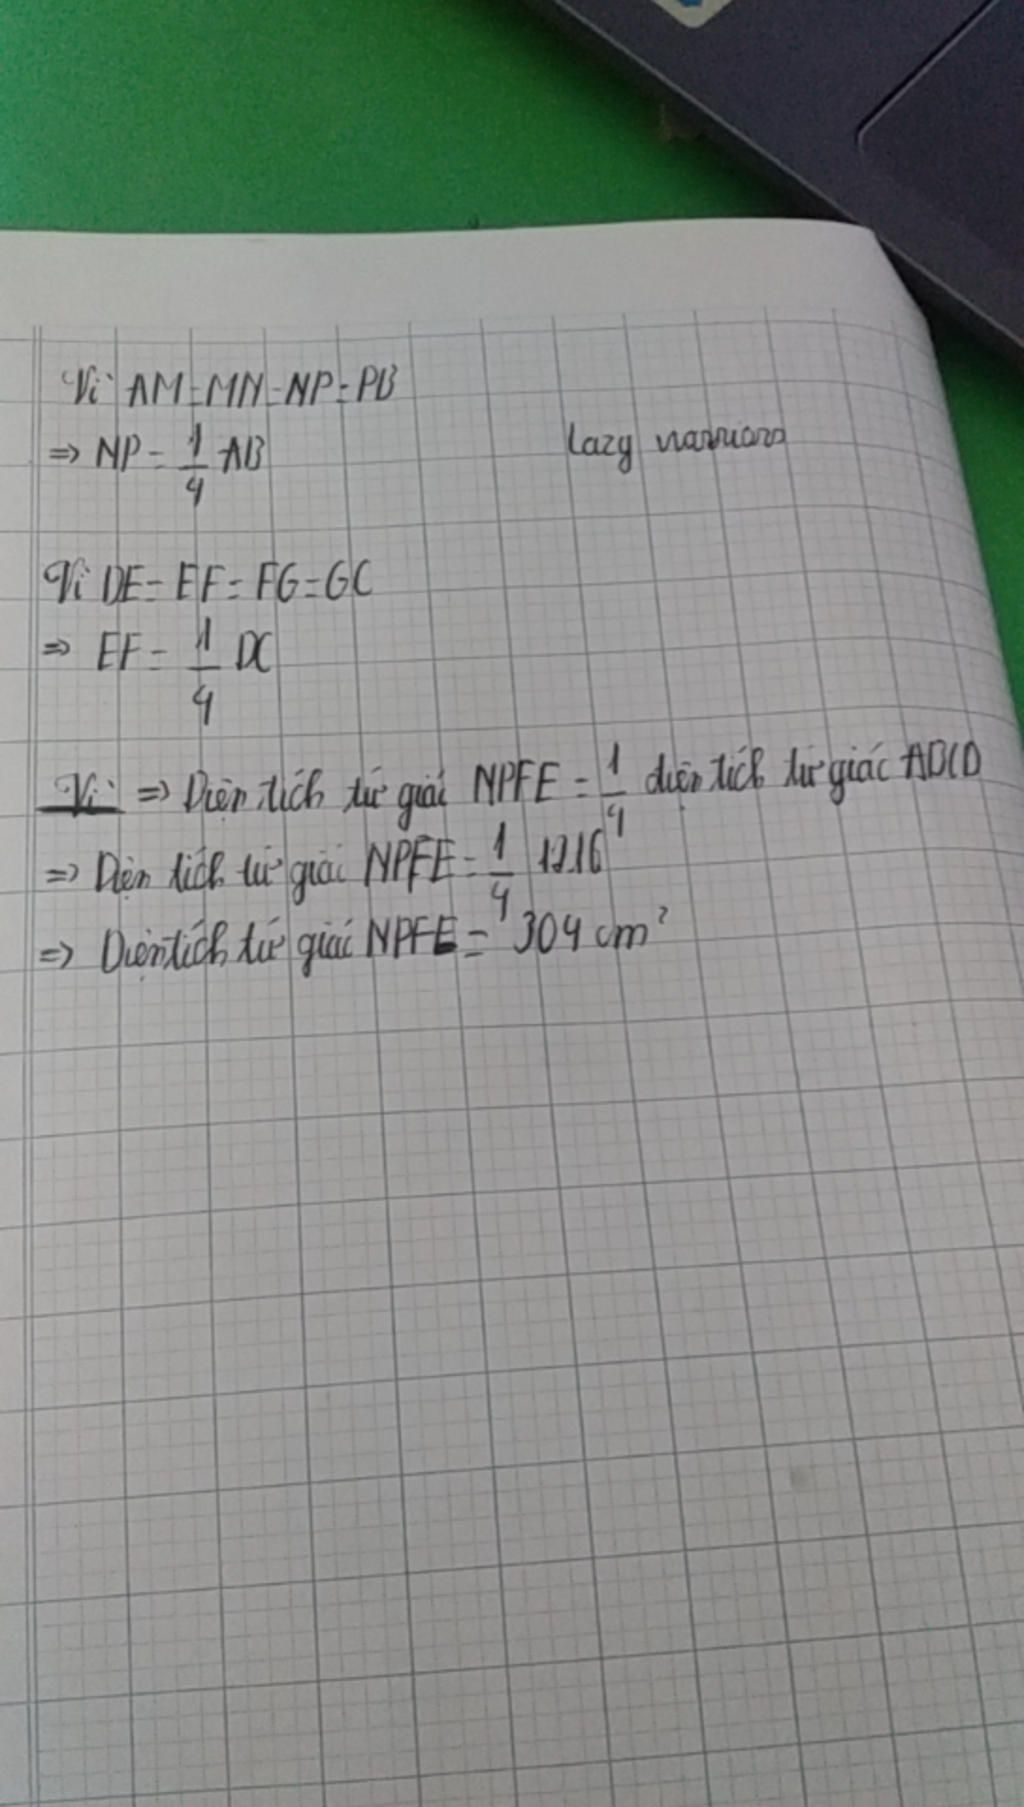 Vì AM=MN=NP=PB
=> NP = 1/4 AB
Lazy warriors
Vì DE = EF = FG = GC
=> EF = 1/4 DC
Vì => Diện tích tứ giác NPFE = 1/4 diện tích tứ giác ABCD
=> Diện tích tứ giác NPFE = 1/4 1216
=> Diện tích tứ giác NPFE = 304 cm²